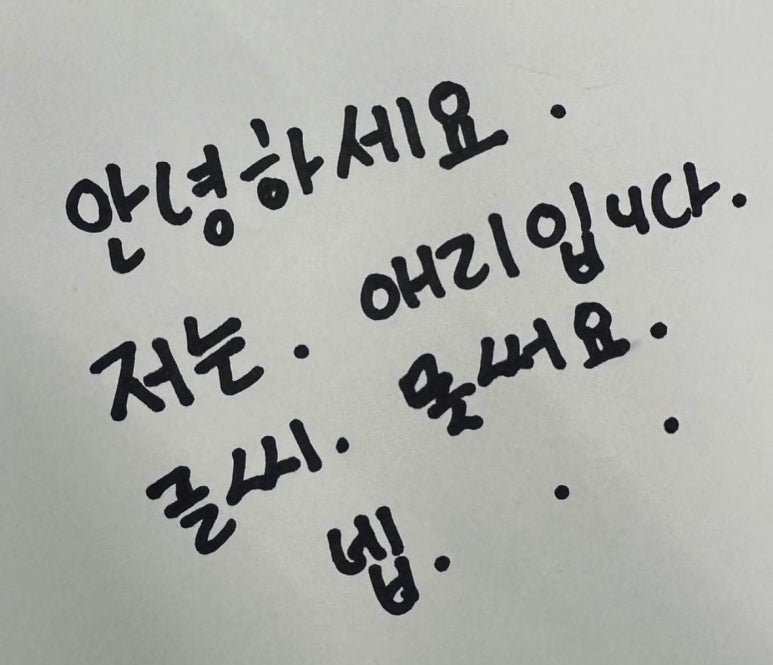 안녕하세요 .
저는. 애리입니다.
글씨. 못써요.
넵. . .